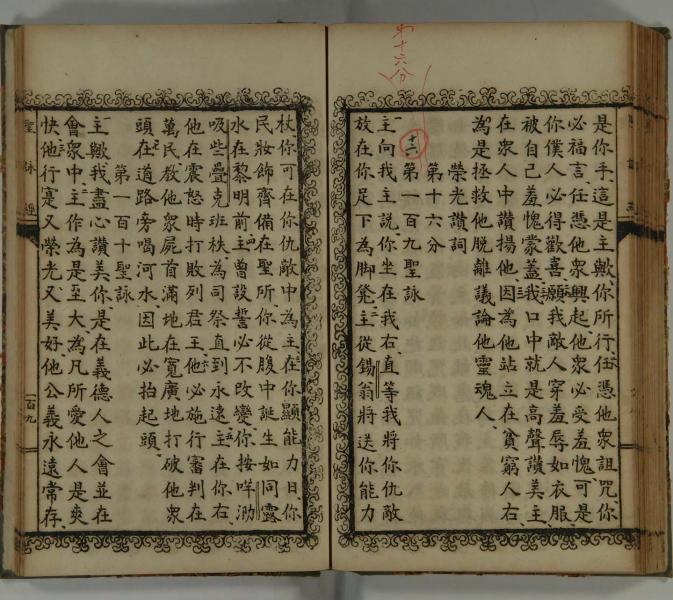 第十六分
是你手、這是主㘚你所行、任憑他衆詛咒你
必福言、任憑他衆興起、他衆必受羞愧、可是
你僕人必得歡喜、願我敵人穿羞辱、如衣服、
被自己羞愧蒙蓋、我口中就是高聲讚美主、
在衆人中讚揚他、因為他站立在貧窮人右
為是拯救他脫離議論他靈魂人、
榮光讚詞
第十六分
十六 第一百九聖詠
主向我主說、你坐在我右、直等我將你仇敵
放在你足下為脚凳、主從錫翁將送你能力
杖、你可在你仇敵中為主、在你顯能力日、你
民妝飾齊備在聖所、你從腹中誕生、如同露
水在黎明前、主曾設誓必不改變、你按咩泐
吸些疊克班秩、為司祭直到永遠、主在你右
他在震怒時打敗列君王、他必施行審判在
萬民、教他衆屍首滿地、在寬廣地打破他衆
頭、在道路旁喝河水、因此必抬起頭、
第一百十聖詠
主㘚、我盡心讚美你、是在義德人之會並在
會衆中、主作為是至大、為凡所愛他人是爽
快、他行寔又榮光又美好、他公義永遠常存、
聖詠經
一百九